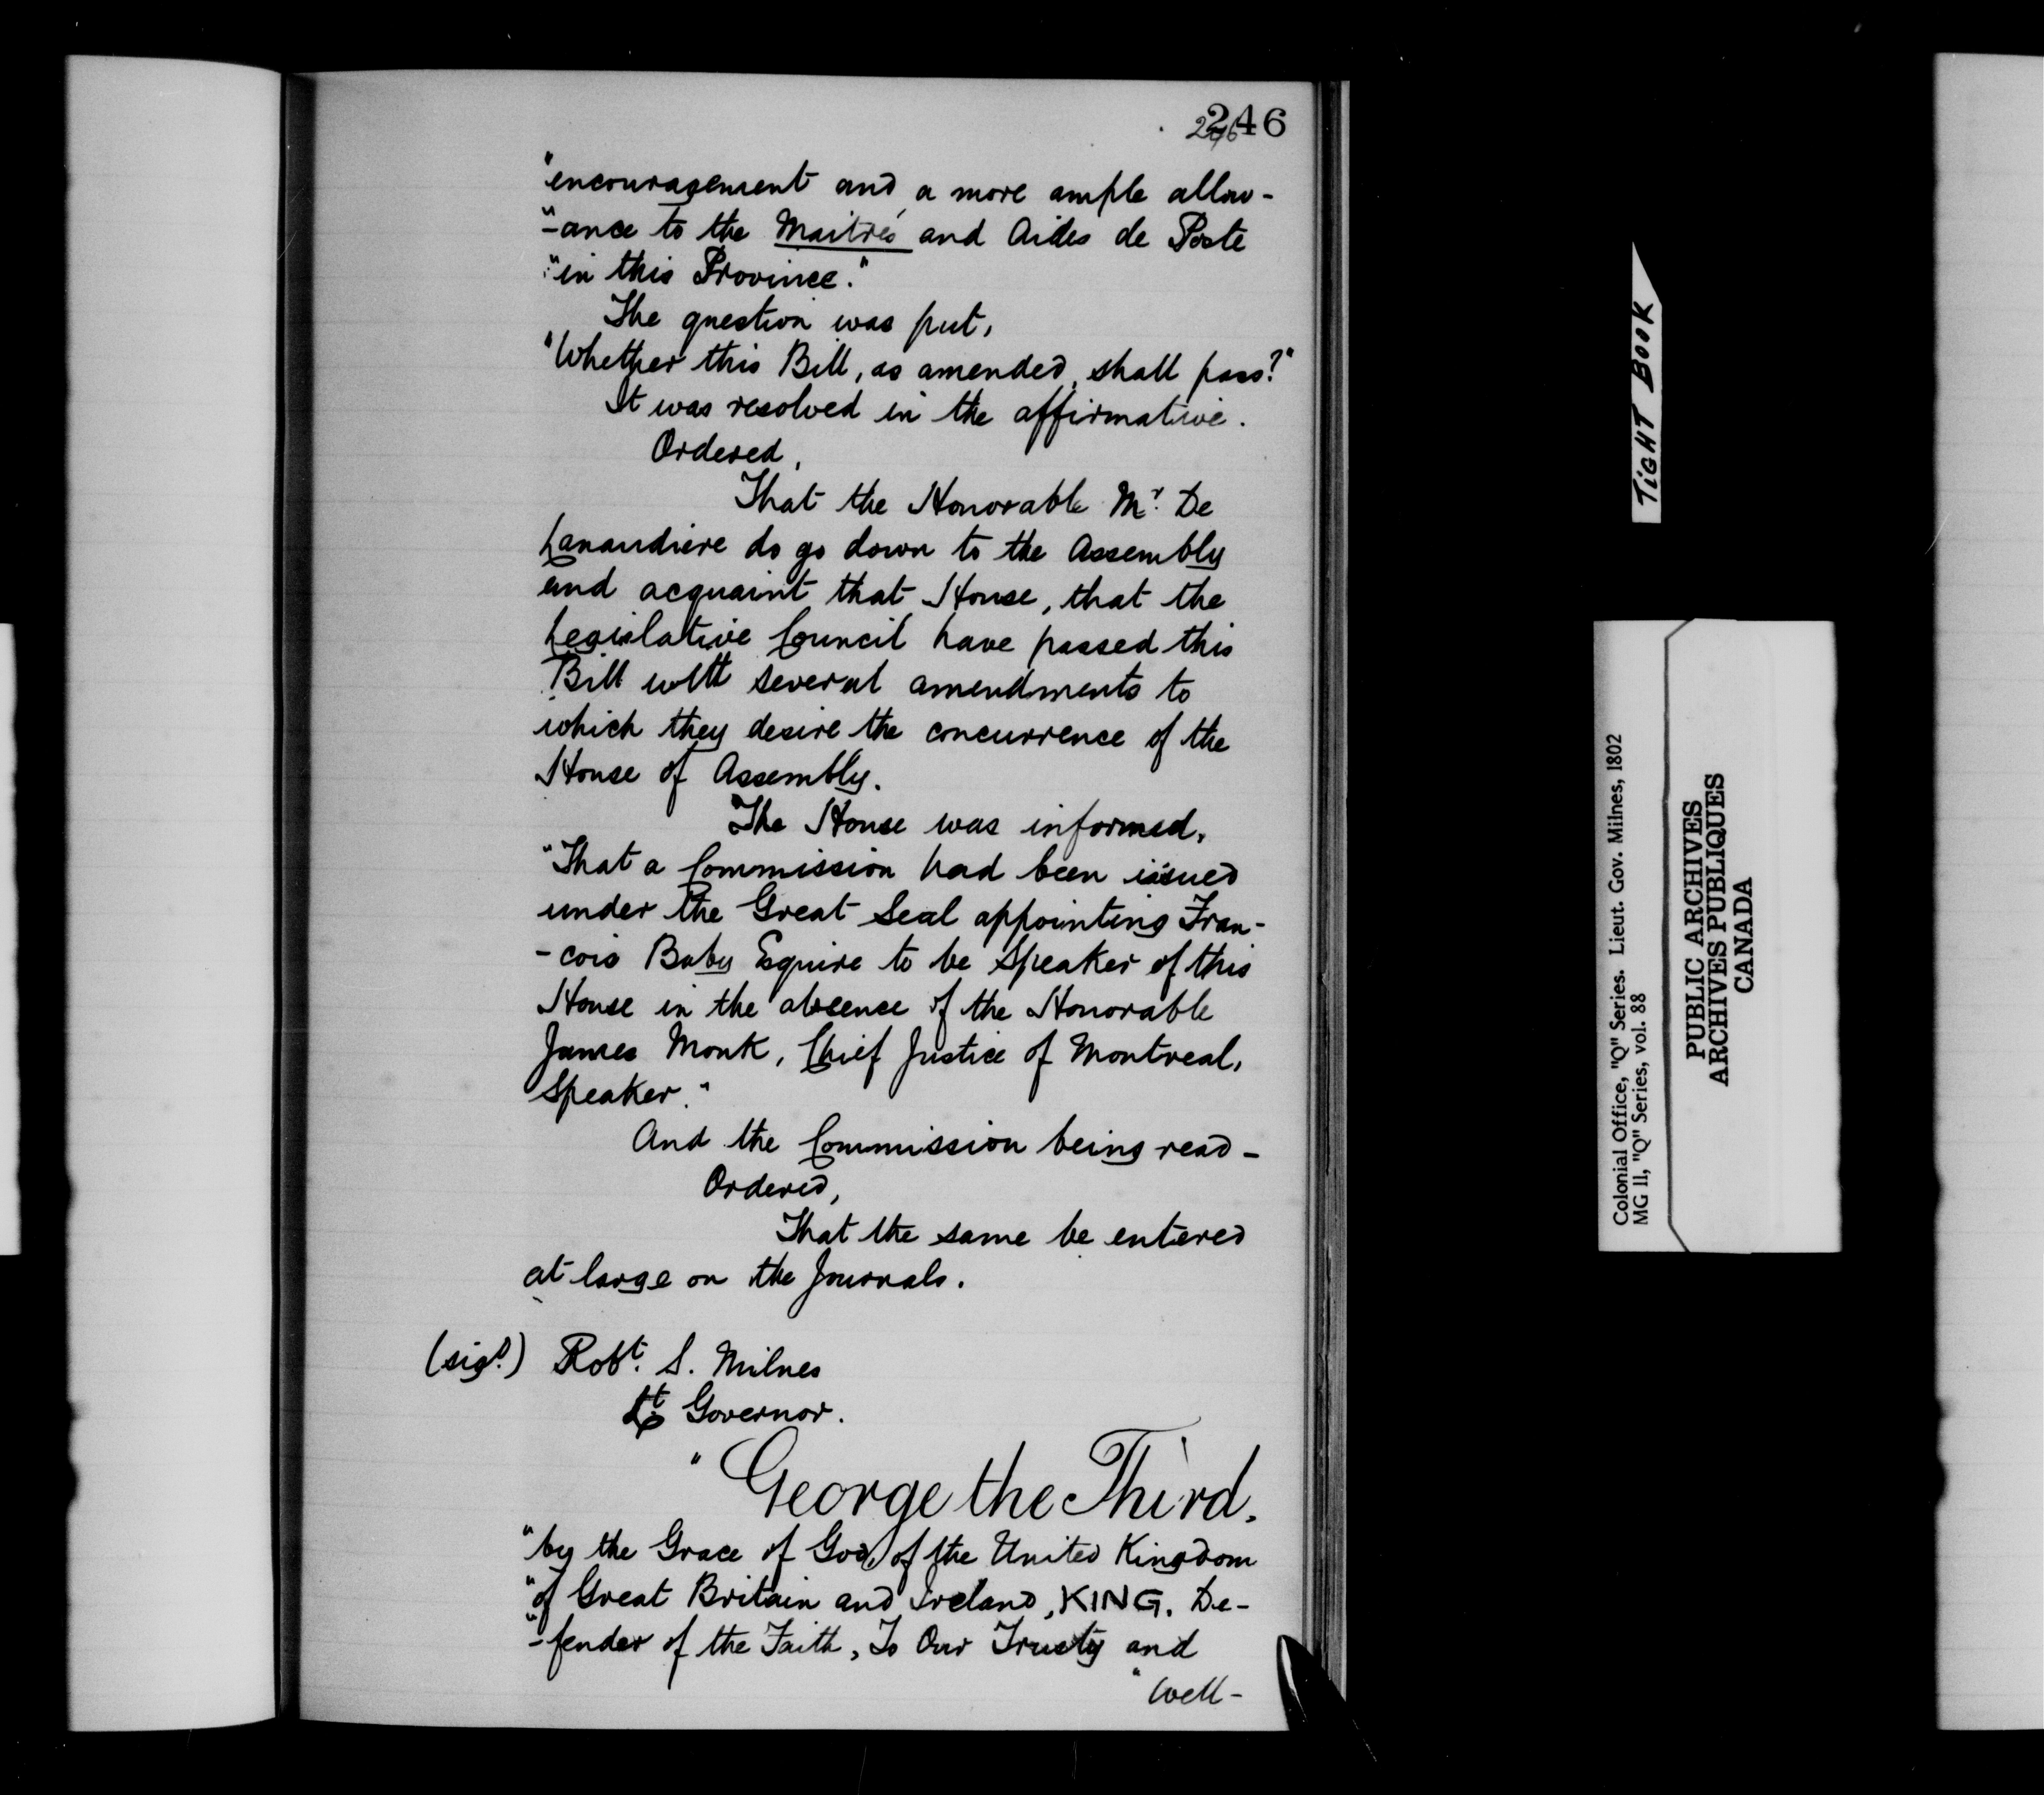 246
246
"encouragement and a more ample allow-
"-ance to the Maitres and Aides de Poste
"in this Province."
The question was put,
"Whether this Bill, as amended, shall pass?"
It was resolved in the affirmative.
Ordered,
That the Honorable Mr. De
Lanaudiere do go down to the Assembly
and acquaint that House, that the
Legislative Council have passed this
Bill with several amendments to
which they desire the concurrence of the
House of Assembly.
The House was informed,
"That a Commission had been issued
under the Great Seal appointing Fran-
-cois Baby Esquire to be Speaker of this
House in the absence of the Honorable
James Monk, Chief Justice of Montreal,
Speaker."
And the Commission being read -
Ordered,
That the same be entered
at large on the Journals.
(sigd.) Robt. S. Milnes
Lt Governor.
"George the Third.
"by the Grace of God, of the United Kingdom
"of Great Britain and Ireland, KING. De-
"-fender of the Faith, To Our Trusty and
"Well-
TIGHT BOOK
Colonial Office, "Q" Series. Lieut. Gov. Milnes, 1802
MG 11, "Q" Series, vol. 88
PUBLIC ARCHIVES
ARCHIVES PUBLIQUES
CANADA